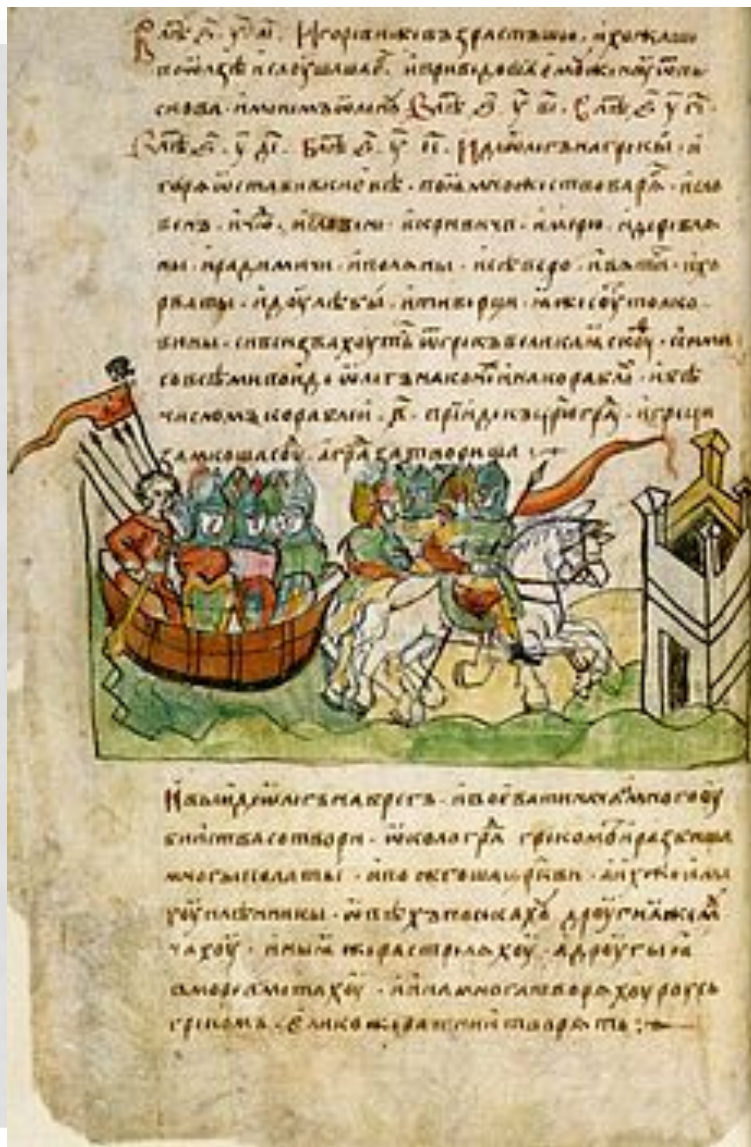 Игореви же възрастъшю. и хожаше
по ѡлзѣ и слоуша е҃. и приведоша емоу женоу ѿ пь
скова. именемъ ѡленоу В лѣ҃т ҂ѕ҃ у҃ вı҃. В лѣ҃т ҂ѕ҃ у҃ гı҃.
В лѣ҃т ҂ѕ҃. у҃ дı҃. В лѣ҃т ҂ѕ҃ у҃ еı҃. Иде ѡлегъ на грекы. и
горя ѡстави в киевѣ. поя множество варя. и сло
венъ. и чю. и словени. и кривичи. и мерю. и деревля
ны. и радимичи. и поляны. и северо. и вятичи. и хо
рваты. и доулѣбы. и тиверци. яже соуть толко
вины. си вси звахоуть ѿ грекъ великая скоуѳ. с сими
со всѣми поиде ѡлегъ на конѣ и на корабле. и бѣ
числомъ кораблеи. в҃. прїиде къ црюгра. и греци
замкоша соу. а гра затвориша
И выиде ѡлегъ на брегъ. и воевати нача. и много оу
биства сотвори. ѡколо гра грекомъ. и разбиша
многы полаты. и пожгоша цр҃кви. а их же има
хоу плѣнникы. ѡвѣхъ посекахоу дроугиа же моу
чахоу. иныя же растреляхоу. а дроугыя
в море вметахоу. и ина многа творяхоу роусь
грекомъ. елико же ратнии творять